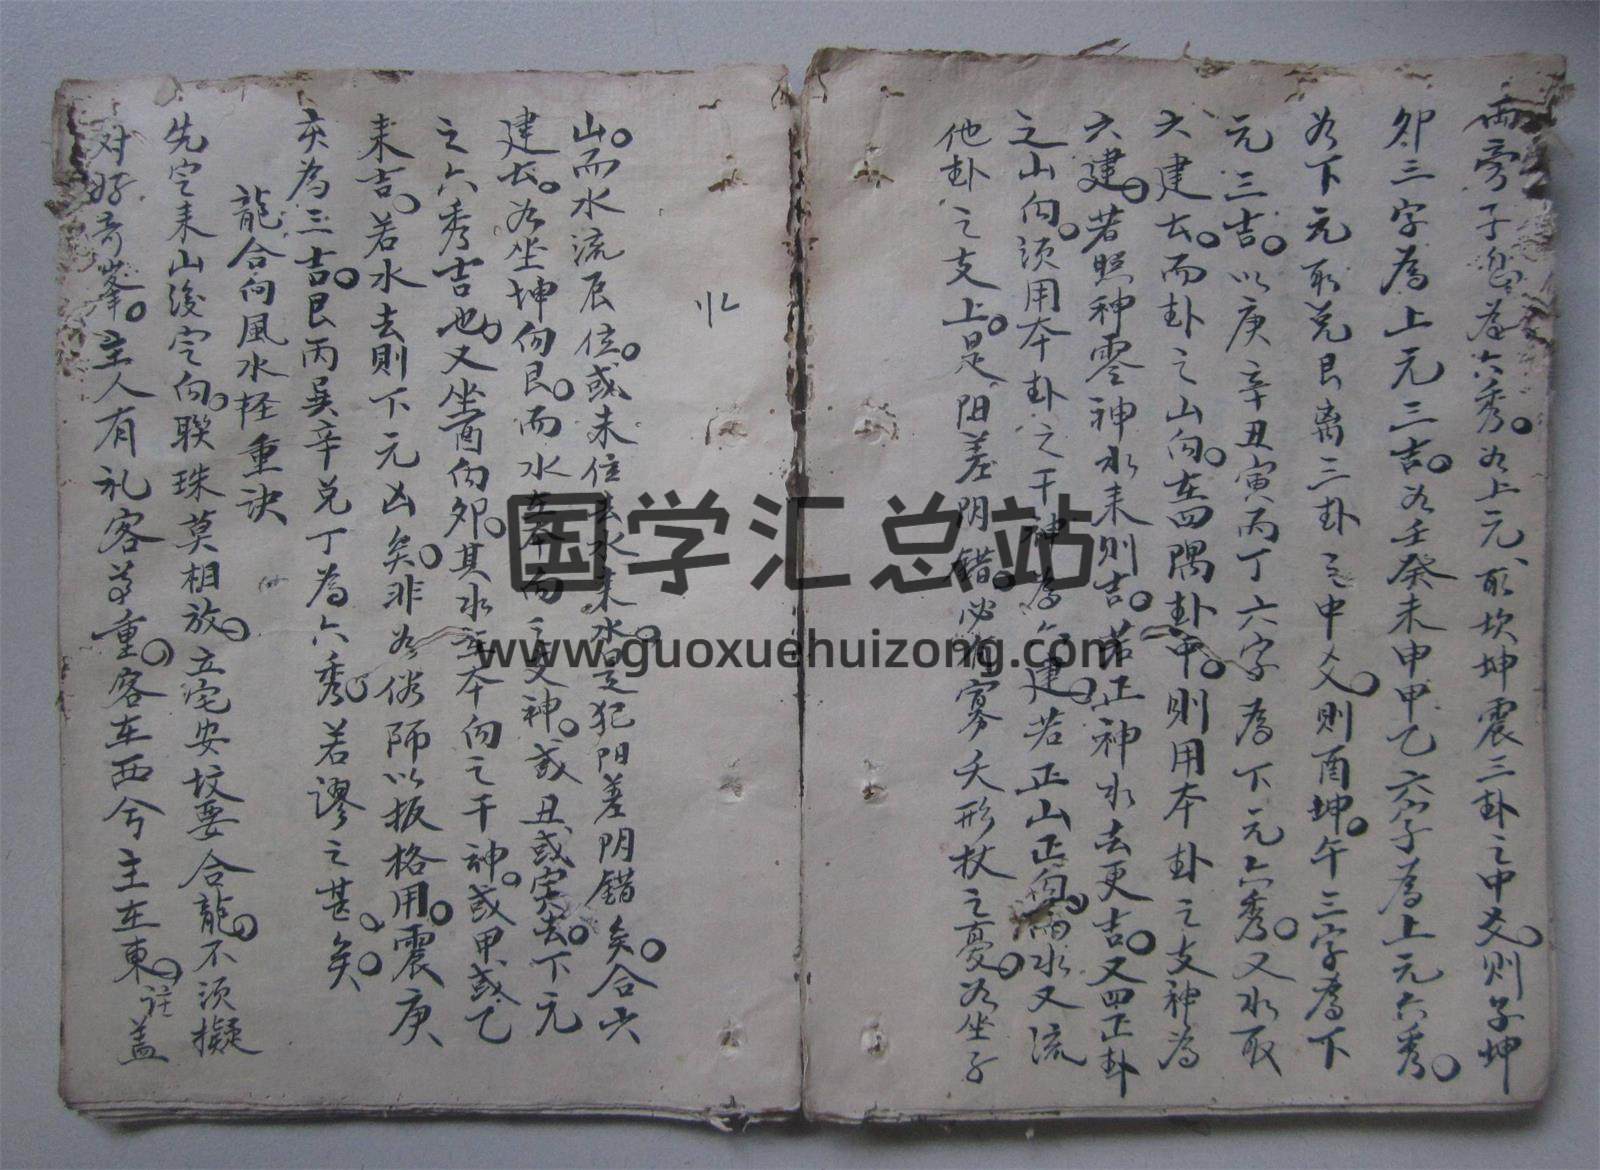 兩旁子息為六秀。如上元、取坎坤震三卦之中爻。則子坤
卯三字為上元三吉。如壬癸未申甲乙六字為上元六秀。
如下元取兌艮离三卦之中爻。則酉坤。午三字為下
元三吉。以庚辛丑寅丙丁六字為下元六秀。又水取
六建去。而卦之山向。在四隅卦中。則用本卦之支神為
六建。若照神零神水来則吉。若正神水去更吉。又四正卦
之山向。須用本卦之干神為六建。若正山正向。而水又流
他卦之支上。是阳差阴錯。必有寡夭形杖之憂。如坐子
山。而水流辰位。或未位去水来水。是犯阳差阴錯矣。合六
建去。如坐坤向艮。而水在本向之支神。或丑或寅去。下元
之六秀吉也。又坐酉向卯。其水在本向之干神。或甲或乙
来吉。若水去則下元凶矣。非如俗師以板格用。震庚
亥為三吉。艮丙巽辛兌丁為六秀。若謬之甚矣。
龍合向風水経重诀
先定来山後定向。聯珠莫相放。立宅安坟要合龍。不須擬
对好奇峯。主人有礼客尊重。客在西兮主在東。註盖
国学汇总站
www.guoxuehuizong.com